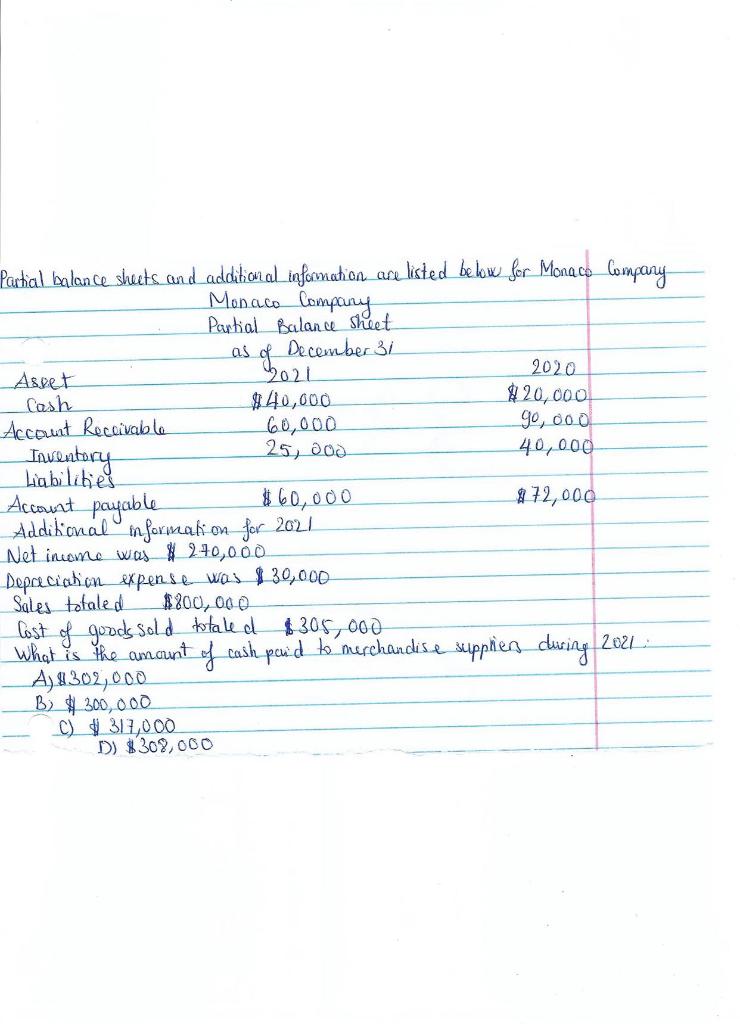 Partial balance sheets and additional information are listed below for Monaco Company
Monaco Company
Partial Balance Sheet
as of December 31
Asset 2021 2020
Cash $40,000 $20,000
Account Receivable 60,000 90,000
Inventory 25,000 40,000
Liabilities
Account payable $60,000 $72,000
Additional information for 2021
Net income was $270,000
Depreciation expense was $30,000
Sales totaled $800,000
Cost of goods sold totaled $305,000
What is the amount of cash paid to merchandise suppliers during 2021:
A) $302,000
B) $300,000
C) $317,000
D) $308,000